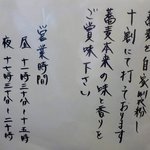 蕎麦を自家製粉し
十割にて打っております
蕎麦本来の味と香りを
ご賞味下さい
営業時間
昼 十一時三十分〜十五時
夜 十七時三十分〜二十時